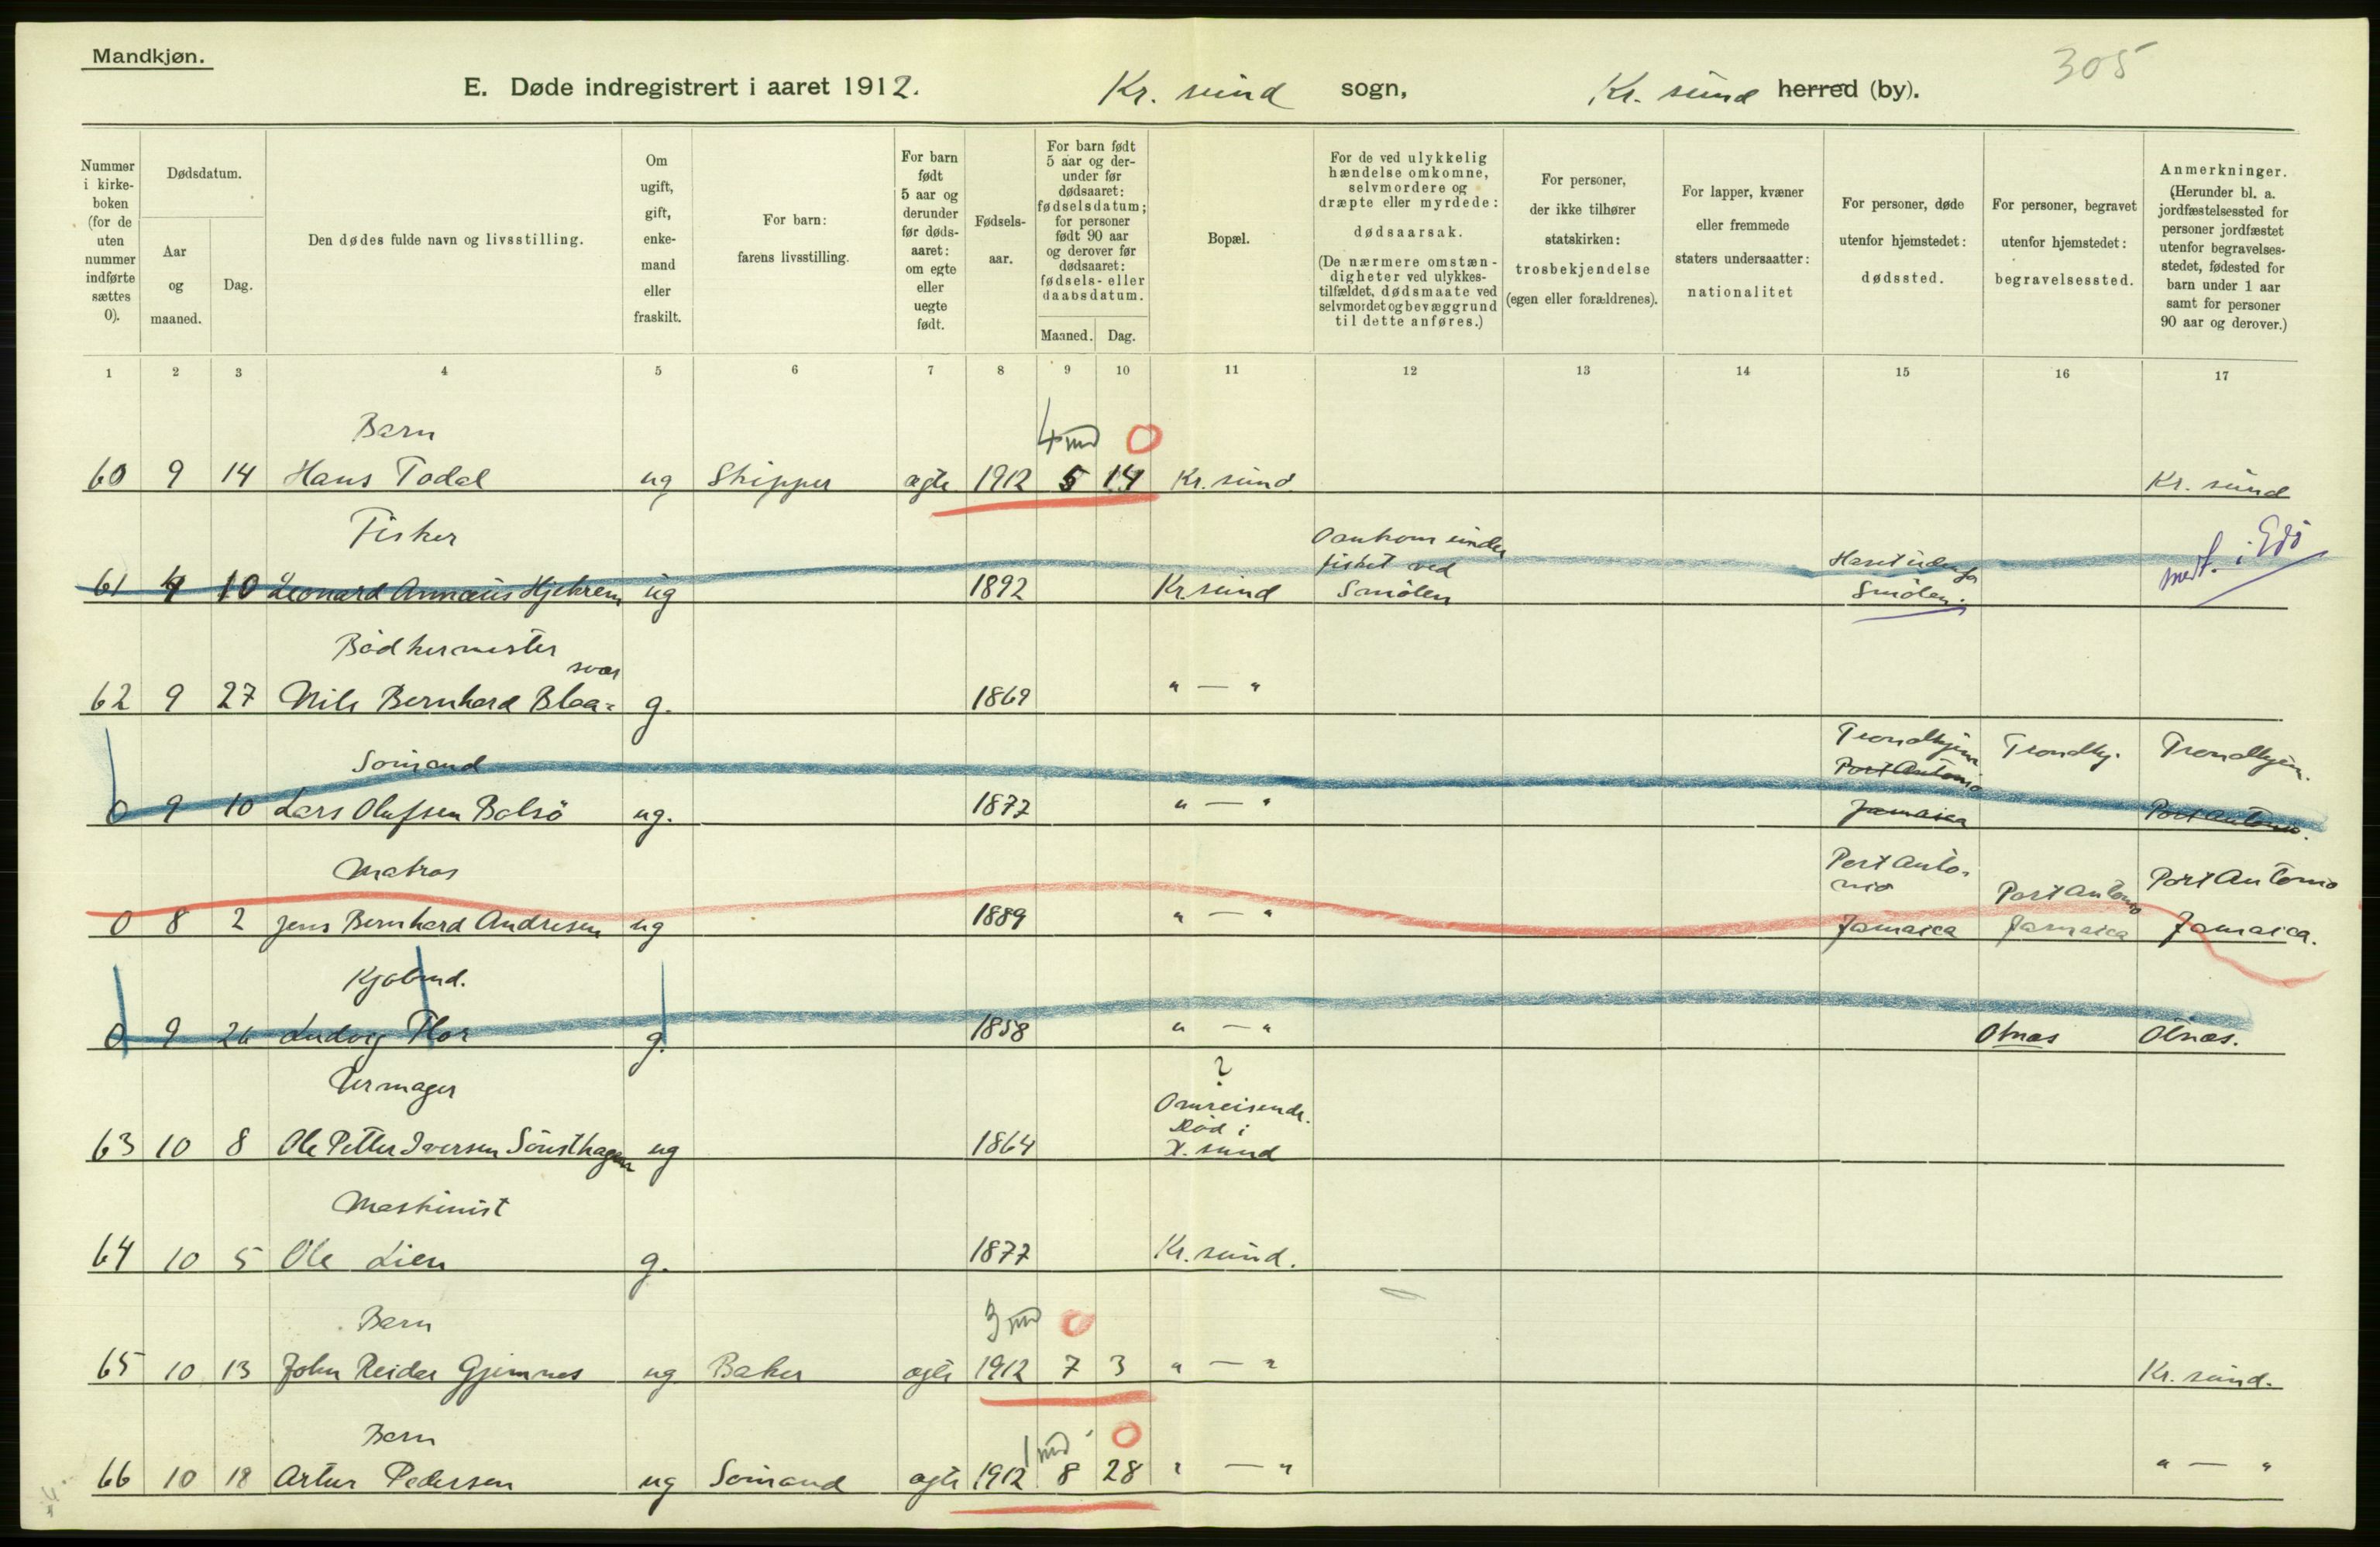 Mandkjøn.
305
E. Døde indregistrert i aaret 1912. Kr. sund sogn, Kr. sund herred (by).
Nummer i kirkeboken (for de uten nummer indførte sættes 0).
Dødsdatum.
Aar og maaned.
Dag.
Den dødes fulde navn og livsstilling.
Om ugift, gift, enkemand eller fraskilt.
For barn: farens livsstilling.
For barn født 5 aar og derunder før dødsaaret: om egte eller uegte født.
Fødselsaar.
For barn født 5 aar og derunder før dødsaaret: fødselsdatum; for personer født 90 aar og derover før dødsaaret: fødsels- eller daabsdatum.
Maaned. Dag.
Bopæl.
For de ved ulykkelig hændelse omkomne, selvmordere og dræpte eller myrdede: dødsaarsak. (De nærmere omstændigheter ved ulykkestilfældet, dødsmaate ved selvmordet og bevæggrund til dette anføres.)
For personer, der ikke tilhører statskirken: trosbekjendelse (egen eller forældrenes).
For lapper, kvæner eller fremmede staters undersaatter: nationalitet
For personer, døde utenfor hjemstedet: dødssted.
For personer, begravet utenfor hjemstedet: begravelsessted.
Anmerkninger. (Herunder bl. a. jordfæstelsessted for personer jordfæstet utenfor begravelsesstedet, fødested for barn under 1 aar samt for personer 90 aar og derover.)
1 2 3 4 5 6 7 8 9 10 11 12 13 14 15 16 17
Barn 4 md 0
60 9 14 Hans Todal ug Skipper ægte 1912 5 14 Kr. sund Kr. sund
Fisker Omkom under
fisket ved Havet udenfor i Edø
61 4 10 Leonard Annæus Hjelkrem ug 1892 Kr. sund Smölen Smölen.
Bødkermester
svær
62 9 27 Nils Bernhard Blaa= g. 1869 " — "
Trondhjem Trondhj. Trondhjem.
Sömand Port Antonio
0 9 10 Lars Olufsen Bolsö ug. 1877 " — " Jamaica Port Antonio.
Matros Port Anto-
nio Port Antonio Port Antonio
0 8 2 Jens Bernhard Andresen ug 1889 " — " Jamaica Jamaica Jamaica.
Kjøbmd.
0 9 26 Ludvig Flor g. 1858 " — " Otnæs Otnæs.
Urmager ?
Omreisende.
Död i
63 10 8 Ole Petter Iversen ug 1864 X. sund
Maskinist
64 10 5 Ole Lien g. 1877 Kr. sund.
Barn 3 md 0
65 10 13 John Reidar Gjemnes ug Baker ægte 1912 7 3 " — " Kr. sund.
Barn 1 md 0
66 10 18 Artur Pedersen ug Sömand ægte 1912 8 28 " — " " — "